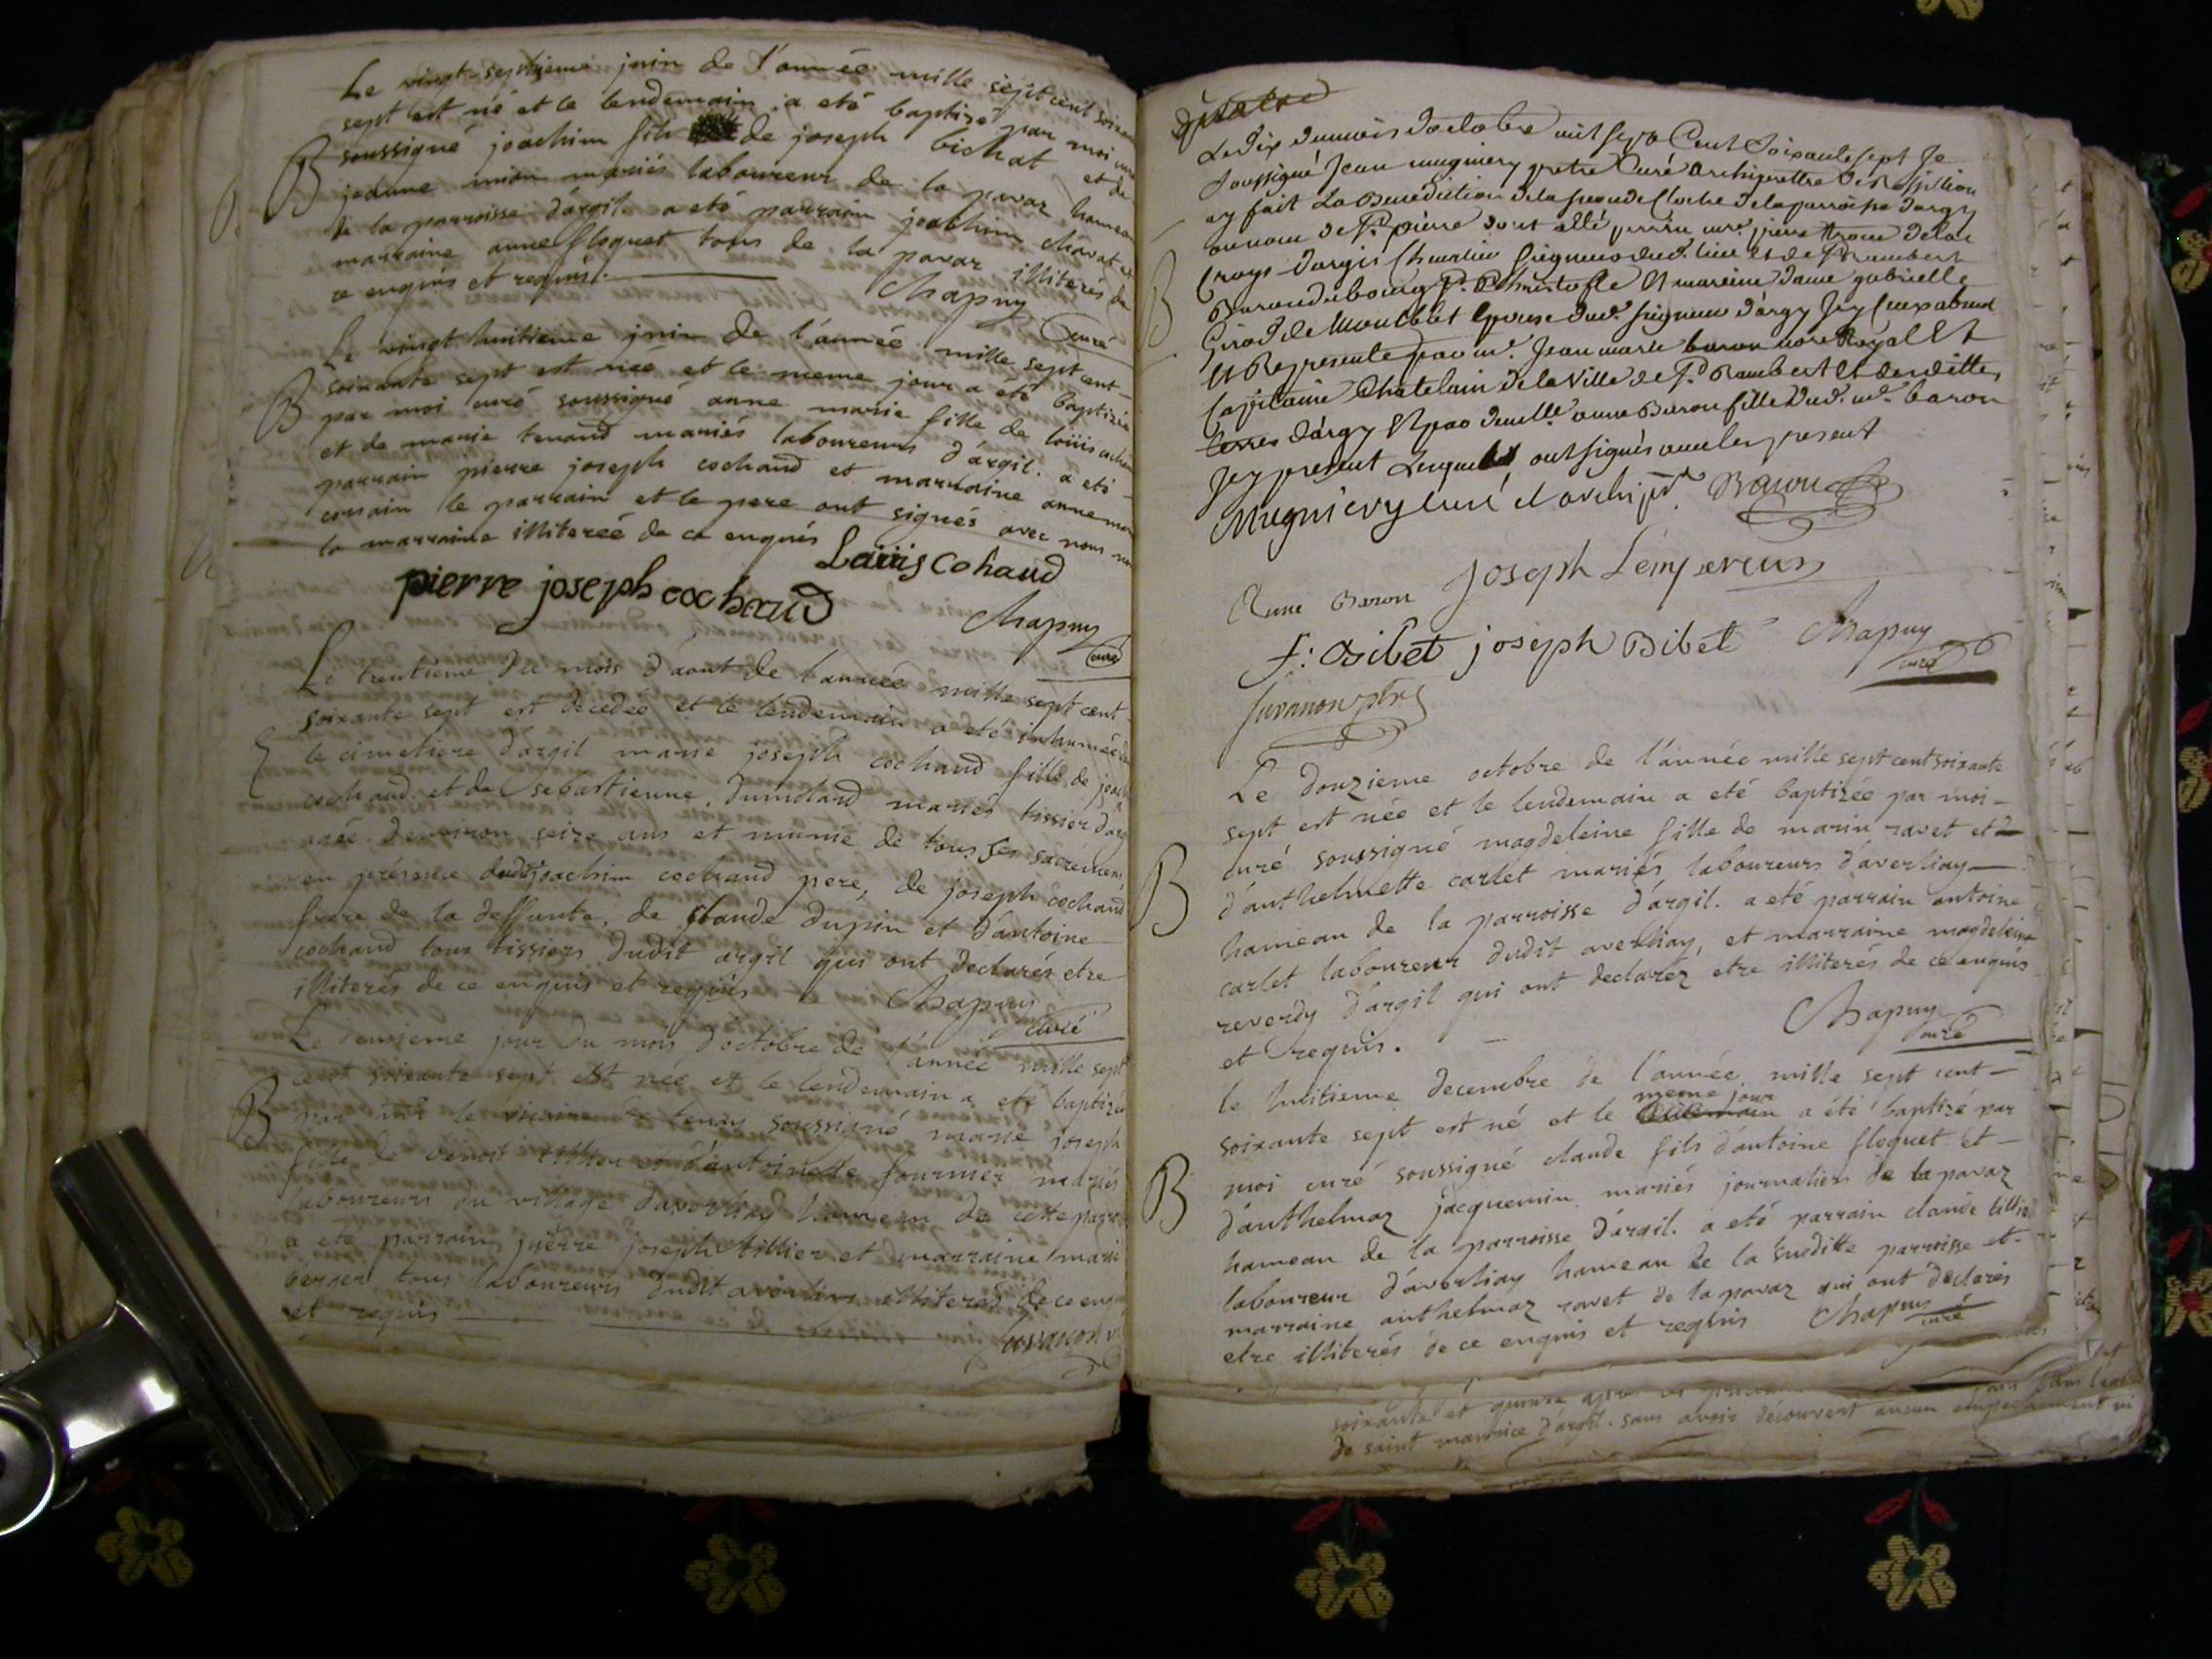 Le vingt-septieme juin de l'année mille sept cent soixante
sept est né et le lendemain a eté baptizé par moi curé
B soussigné joachim fils de joseph bichat et de
jeanne mion mariés laboureur de la pavaz hameau
de la parroisse d'argil. a eté parrain joachim chavat et
marraine anne floquet tous de la pavaz illiterés de
ce enquis et requis.
Chapuy
curé
Le vingt huitieme juin de l'année mille sept cent
B soixante sept est née et le meme jour a été baptizée
par moi curé soussigné anne marie fille de loüis
et de marie tenand mariés laboureurs d'argil. a eté
parrain pierre joseph cochaud et marraine anne
le parrain et le pere ont signés avec nous
la marraine illiterée de ce enquis
Laüis Cohaud
pierre joseph cochaud
Chapuy
curé
Le trentieme du mois d'aout de l'année mille sept cent
soixante sept est decedée et le lendemain a eté inhumée
le cimetiere d'argil marie joseph cochaud fille de
cochaud et de sebastienne dumoland mariés tissier
agée d'environ seize ans et munie de tous ses sacremens,
en présence dudit joachim cochaud pere, de joseph cochaud
frere de la deffunte, de claude dupin et d'antoine
cochaud tous tissiers dudit argil qui ont declarés etre
illiterés de ce enquis et requis
Chapuy
curé
Le jour du mois d'octobre de l'année mille sept
cent soixante sept est née et le lendemain a eté baptizée
B par moi le vicaire de tenay soussigné marie joseph
fille de benoit tillier et d'antoinette fournier mariés
laboureurs du village d'averliay hameau de cette
a eté parrain pierre joseph tillier et marraine marie
berger tous laboureurs dudit averliay illiterés de ce
et requis
Juvanon
Le dix du mois d'octobre mil sept Cent Soixante sept Je
Soussigné Jean mugniery pretre Curé archiprettre de
ay fait La Benediction de la seconde Cloche de la parroisse dargy
B au nom de St. pierre dont a été
Crays-dargis Chevalier Seigneur dud. lieu et de St Rambert
Baron du bourg St. Christofle Et mareine dame gabrielle
Girod de Montbel Epouse dud. seigneur d'argy
Et Representés par mr. Jean marie baron nore Royal Et
Capitaine Chatelain de la Ville de St. Rambert Et desdittes
terres d'argy Et par demlle. anne Baron fille dud. mr. baron
Jcy present Lesquels ont signés avec les present
Mugniery curé et Baron
Anne Baron
Joseph
f: Bibet joseph Bibet
Chapuy
curé
Juvanon ptre
Le douzieme octobre de l'année mille sept cent soixante
sept est née et le lendemain a eté baptizée par moi
B curé soussigné magdeleine fille de marin ravet et
d'anthelmette carlet mariés laboureurs d'averliay
hameau de la parroisse d'argil. a eté parrain antoine
carlet laboureur dudit averliay, et marraine magdeleine
reverdy d'argil qui ont declarez etre illiterés de ce enquis
et requis.
Chapuy
curé
le huitieme decembre de l'année mille sept cent
meme jour
soixante sept est né et le lendemain a été baptizé par
B moi curé soussigné claude fils d'antoine floquet et
d'anthelmaz jacquemin mariés journaliers de la pavaz
hameau de la parroisse d'argil. a eté parrain claude
laboureur d'averliay hameau de la suditte parroisse et
marraine anthelmaz ravet de la pavaz qui ont declarés
etre illiterés de ce enquis et requis
Chapuy
curé
soixante et quinze après
de saint maurice d'argil. sans avoir découvert aucun empechement ni